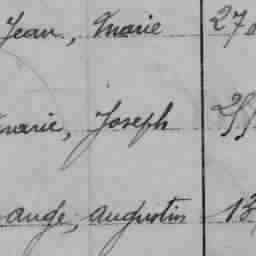 Jean, Marie 27
Marie, Joseph
ange, Augustin 13